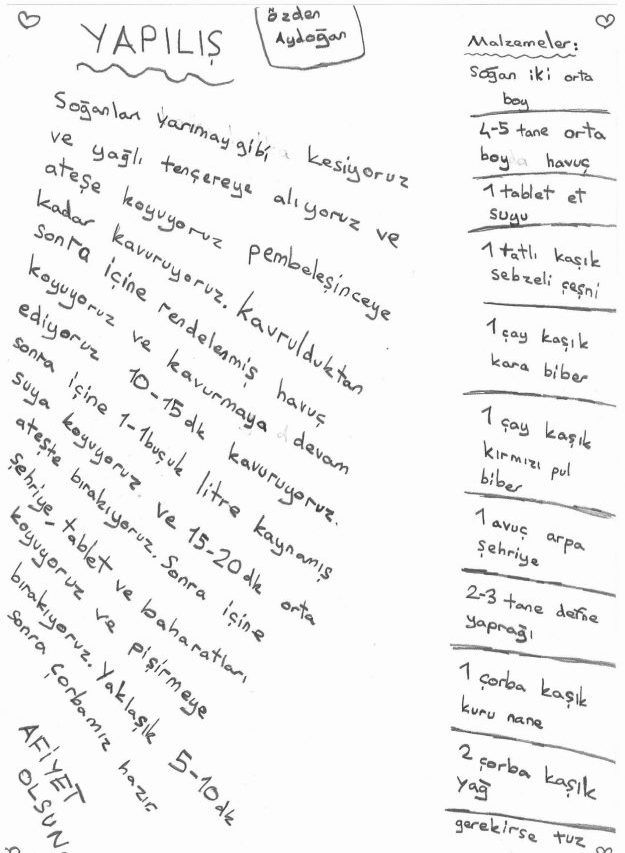 YAPILIŞ
özden
Aydoğan
Soğanları yarımay gibi kesiyoruz
ve yağlı tencereye alıyoruz ve
ateşe koyuyoruz pembeleşinceye
kadar kavuruyoruz. Kavrulduktan
sonra içine rendelenmiş havuç
koyuyoruz ve kavurmaya devam
ediyoruz 10-15dk kavuruyoruz.
sonra içine 1-1buçuk litre kaynamış
suya koyuyoruz ve 15-20dk orta
ateşte bırakıyoruz. Sonra içine
şehriye, tablet ve baharatları
koyuyoruz ve pişirmeye
bırakıyoruz. Yaklaşık 5-10dk
sonra çorbamız hazır
AFİYET
OLSUN
Malzemeler:
Soğan iki orta
boy
4-5 tane orta
boy havuç
1 tablet et
suyu
1 tatlı kaşık
sebzeli çeşni
1 çay kaşık
kara biber
1 çay kaşık
kırmızı pul
biber
1 avuç arpa
şehriye
2-3 tane defne
yaprağı
1 çorba kaşık
kuru nane
2 çorba kaşık
yağ
gerekirse tuz